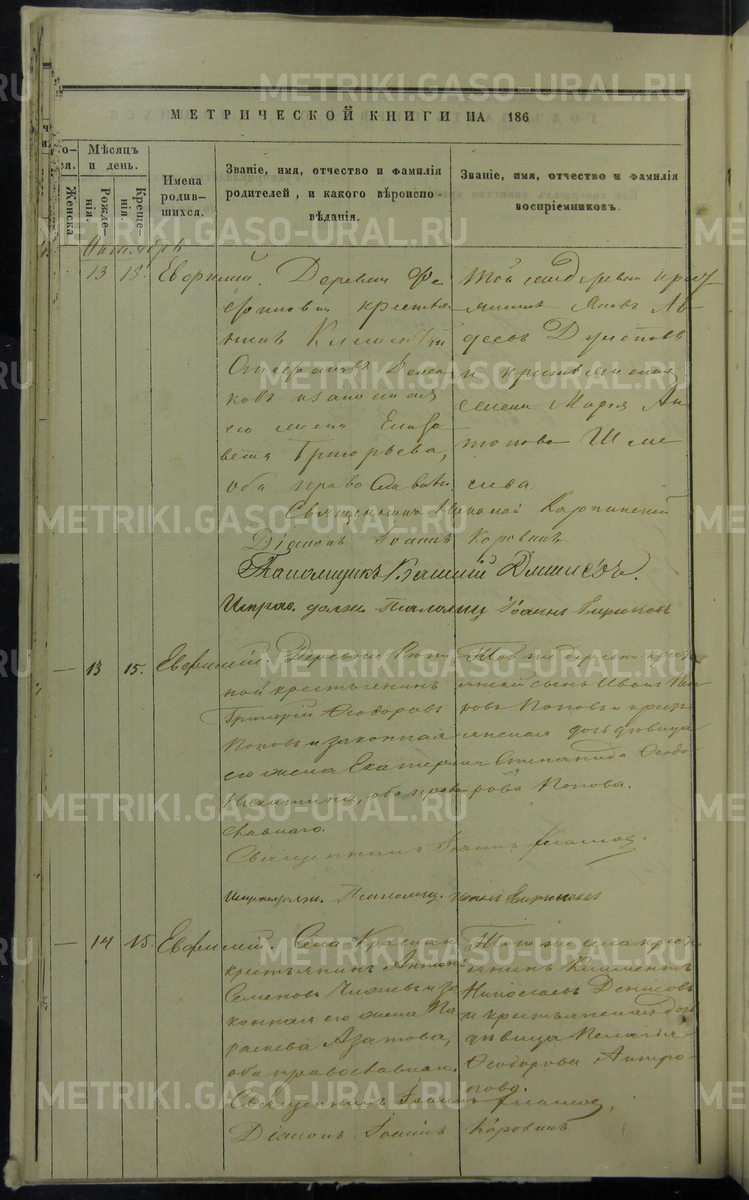 METRIKI.GASO-URAL.RU
МЕТРИЧЕСКОЙ КНИГИ НА 186
Мѣсяцъ и день.
Женска
Рожденія.
Крещенія.
Имена родившихся.
Званіе, имя, отчество и фамилія родителей, и какого вѣроисповѣданія.
Званіе, имя, отчество и фамилія воспріемниковъ.
Октябрь
13 15. Евфимій. Деревни
крестья
нинъ Климентъ
законная
его жена Елиза
вета Григорьева,
оба православн.
Той же деревни крест
янинъ Іаковъ Ав
деевъ
и крестьянская
жена Марія Ан
тонова Шме
лева.
Священникъ Николай Карпинскій
Діаконъ Іоаннъ Коровинъ
Паломщикъ Василій
Исправ. должн. Псаломщ. Іоаннъ Бирюковъ
13 15. Евфимій. Деревни
ной крестьянинъ
Григорій Ѳеодоровъ
Поповъ и законная
его жена Екатерина
Никитина, оба право
славнаго.
Той же деревни крест
янскій сынъ Иванъ
Поповъ и крест
янская дочь дѣвица
Степанида Ѳеодо
рова Попова.
Священникъ Іоаннъ
Исправ. должн. Псаломщ. Іоаннъ Бирюковъ
14 15. Евфимій. Села
крестьянинъ Антонъ
Семеновъ и за
конная его жена Па
раскева Азатова,
оба православнаг.
Того же села крест
янинъ Климентъ
Николаевъ Денисовъ
и крестьянская доч
дѣвица Пелагія
Ѳеодорова Антро
пова.
Священникъ Іоаннъ
Діаконъ Іоаннъ Коровинъ